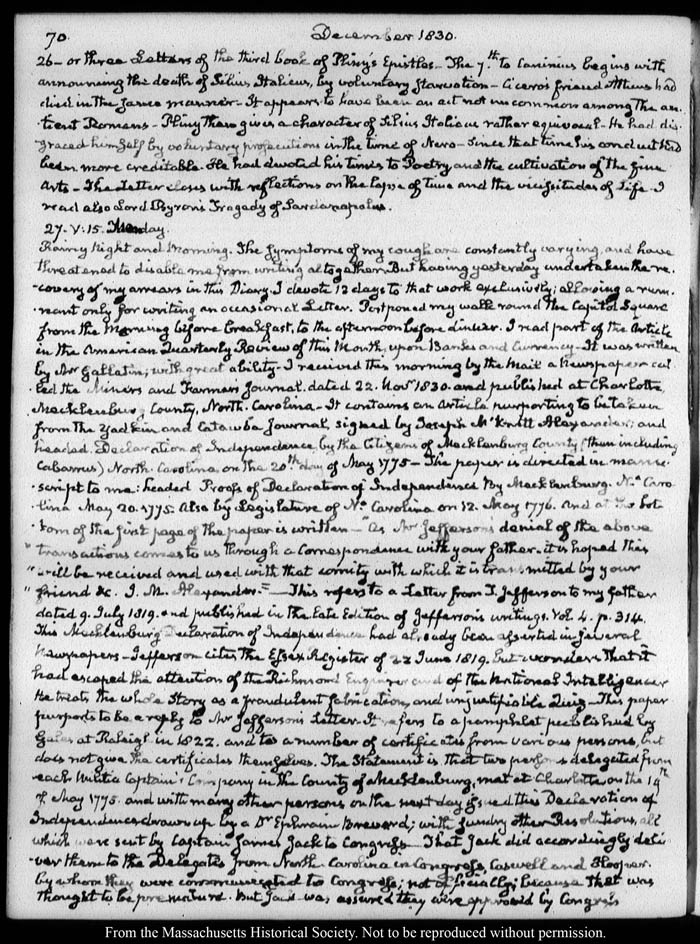 70.
December 1830.
26 – or three Letters of the third book of Pliny's Epistles – The 7.th to Caninius begins with
announcing the death of Silius Italicus, by voluntary starvation – Cicero's friend Atticus had
died in the same manner – It appears to have been an act not uncommon among the an-
tient Romans – Pliny then gives a character of Silius Italicus rather equivocal – He had dis-
graced himself by voluntary prosecutions in the time of Nero – Since that time his conduct had
been more creditable. He had devoted his times to Poetry and the cultivation of the fine
Arts – The Letter closes with reflections on the lapse of time and the vicissitudes of Life. I
read also Lord Byron's Tragedy of Sardanapalus.
27. V. 15. Monday.
Rainy Night and Morning. The symptoms of my cough are constantly varying, and have
threatened to disable me from writing altogether. But having yesterday undertaken the re-
-covery of my arrears in this Diary, I devote 12 days to that work exclusively; allowing a rem-
-nant only for writing an occasional Letter. Postponed my walk round the Capitol Square
from the Morning before breakfast, to the afternoon before dinner. I read part of the Article
in the American Quarterly Review of this Month, upon Banks and Currency – It was written
by Mr Gallatin; with great ability – I received this morning by the Mail a Newspaper cal-
led the Miners and Farmers Journal, dated 22. Novr 1830. and published at Charlotte,
Mecklenburg County, North Carolina – It contains an Article purporting to be taken
from the Yadkin and Catawba Journal, signed by Joseph McKnitt Alexander; and
headed. Declaration of Independence, by the Citizens of Mecklenburg County (then including
Cabarrus) North Carolina, on the 20th day of May 1775 – The paper is directed in manu-
-script to me: headed Proofs of Declaration of Independence by Mecklenburg. No. Caro-
-lina May 20. 1775. Also by Legislature of No. Carolina on 12. May 1776. And at the bot-
-tom of the first page of the paper is written – "As Mr Jefferson's denial of the above
" transactions comes to us through a Correspondence with your father – it is hoped this
" will be received and used with that comity with which it is transmitted by your
" friend &c. J. M. Alexander." – This refers to a Letter from T. Jefferson to my father
dated 9. July 1819. and published in the late Edition of Jefferson's writings. Vol. 4. p. 314.
This Mecklenburg Declaration of Independence had already been asserted in several
Newspapers – Jefferson cites the Essex Register of 22 June 1819. but wonders that it
had escaped the attention of the Richmond Enquirer and of the National Intelligencer
He treats the whole Story as a fraudulent fabrication, and unjustifiable Quiz – This paper
purports to be a reply to Mr Jefferson's Letter. It refers to a pamphlet published by
Gales at Raleigh in 1822. and to a number of certificates from various persons, but
does not give the certificates themselves. The Statement is that two persons delegated from
each Militia Captain's Company in the County of Mecklenburg, met at Charlotte on the 19th
of May 1775. and with many other persons on the next day issued this Declaration of
Independence drawn up by a Dr Ephraim Brevard; with sundry other Resolutions, all
which were sent by Captain James Jack to Congress – That Jack did accordingly deli-
ver them to the Delegates from North Carolina in Congress, Caswell and Hooper.
by whom they were communicated to Congress; not officially; because that was
thought to be premature. But Jack was assured they were approved by Congress
From the Massachusetts Historical Society. Not to be reproduced without permission.